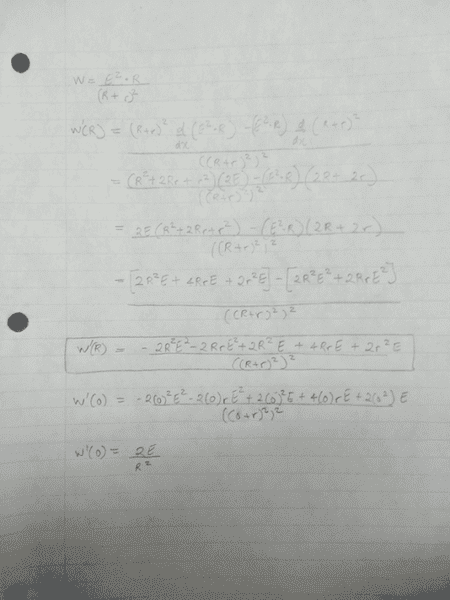 W = E²·R / (R + r)²
W'(R) = (R+r)² d/dx (E²·R) - (E²·R) d/dx (R+r)² / ((R+r)²)²
= (R²+2Rr+r²)(2E) - (E²·R)(2R + 2r) / ((R+r)²)²
= 2E(R²+2Rr+r²) - (E²·R)(2R + 2r) / ((R+r)²)²
= [2R²E + 4RrE + 2r²E] - [2R²E² + 2RrE²] / ((R+r)²)²
W'(R) = - 2R²E² - 2RrE² + 2R²E + 4RrE + 2r²E / ((R+r)²)²
W'(0) = -2(0)²E² - 2(0)rE² + 2(0)²E + 4(0)rE + 2(0²)E / ((0+r)²)²
W'(0) = 2E / R²